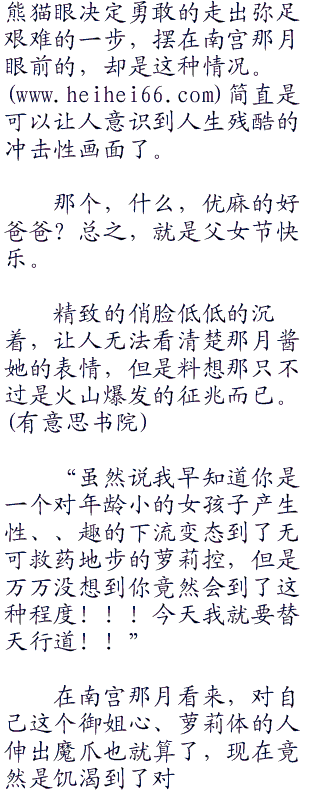 熊猫眼决定勇敢的走出弥足
艰难的一步，摆在南宫那月
眼前的，却是这种情况。
(www.heihei66.com)简直是
可以让人意识到人生残酷的
冲击性画面了。
那个，什么，优麻的好
爸爸？总之，就是父女节快
乐。
精致的俏脸低低的沉
着，让人无法看清楚那月酱
她的表情，但是料想那只不
过是火山爆发的征兆而已。
(有意思书院)
“虽然说我早知道你是
一个对年龄小的女孩子产生
性、、趣的下流变态到了无
可救药地步的萝莉控，但是
万万没想到你竟然会到了这
种程度！！！今天我就要替
天行道！！”
在南宫那月看来，对自
己这个御姐心、萝莉体的人
伸出魔爪也就算了，现在竟
然是饥渴到了对